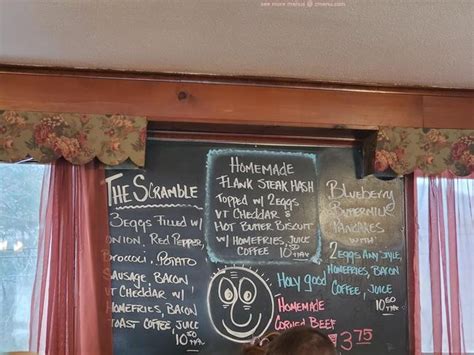 see more menus @ zmenu.com
The Scramble
3 Eggs Filled w/
Onion, Red Pepper,
Broccoli, Potato
Sausage, Bacon,
VT Cheddar w/
Homefries, Bacon
Toast Coffee, Juice
10 50 +TAX
Homemade
Flank Steak Hash
Topped w/ 2 Eggs
VT Cheddar &
Hot Butter Biscuit
w/ Homefries, Juice
Coffee 10 50 +TAX
Blueberry
Buttermilk
Pancakes
with
2 Eggs Any Style,
Homefries, Bacon
Coffee, Juice
10 50 +TAX
Holy good
Homemade
Corned Beef
$3.75